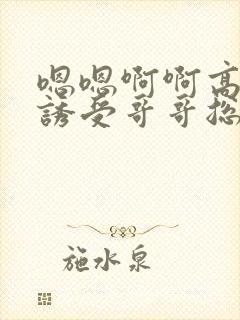 嗯嗯啊啊高
誘受哥哥总
施水泉